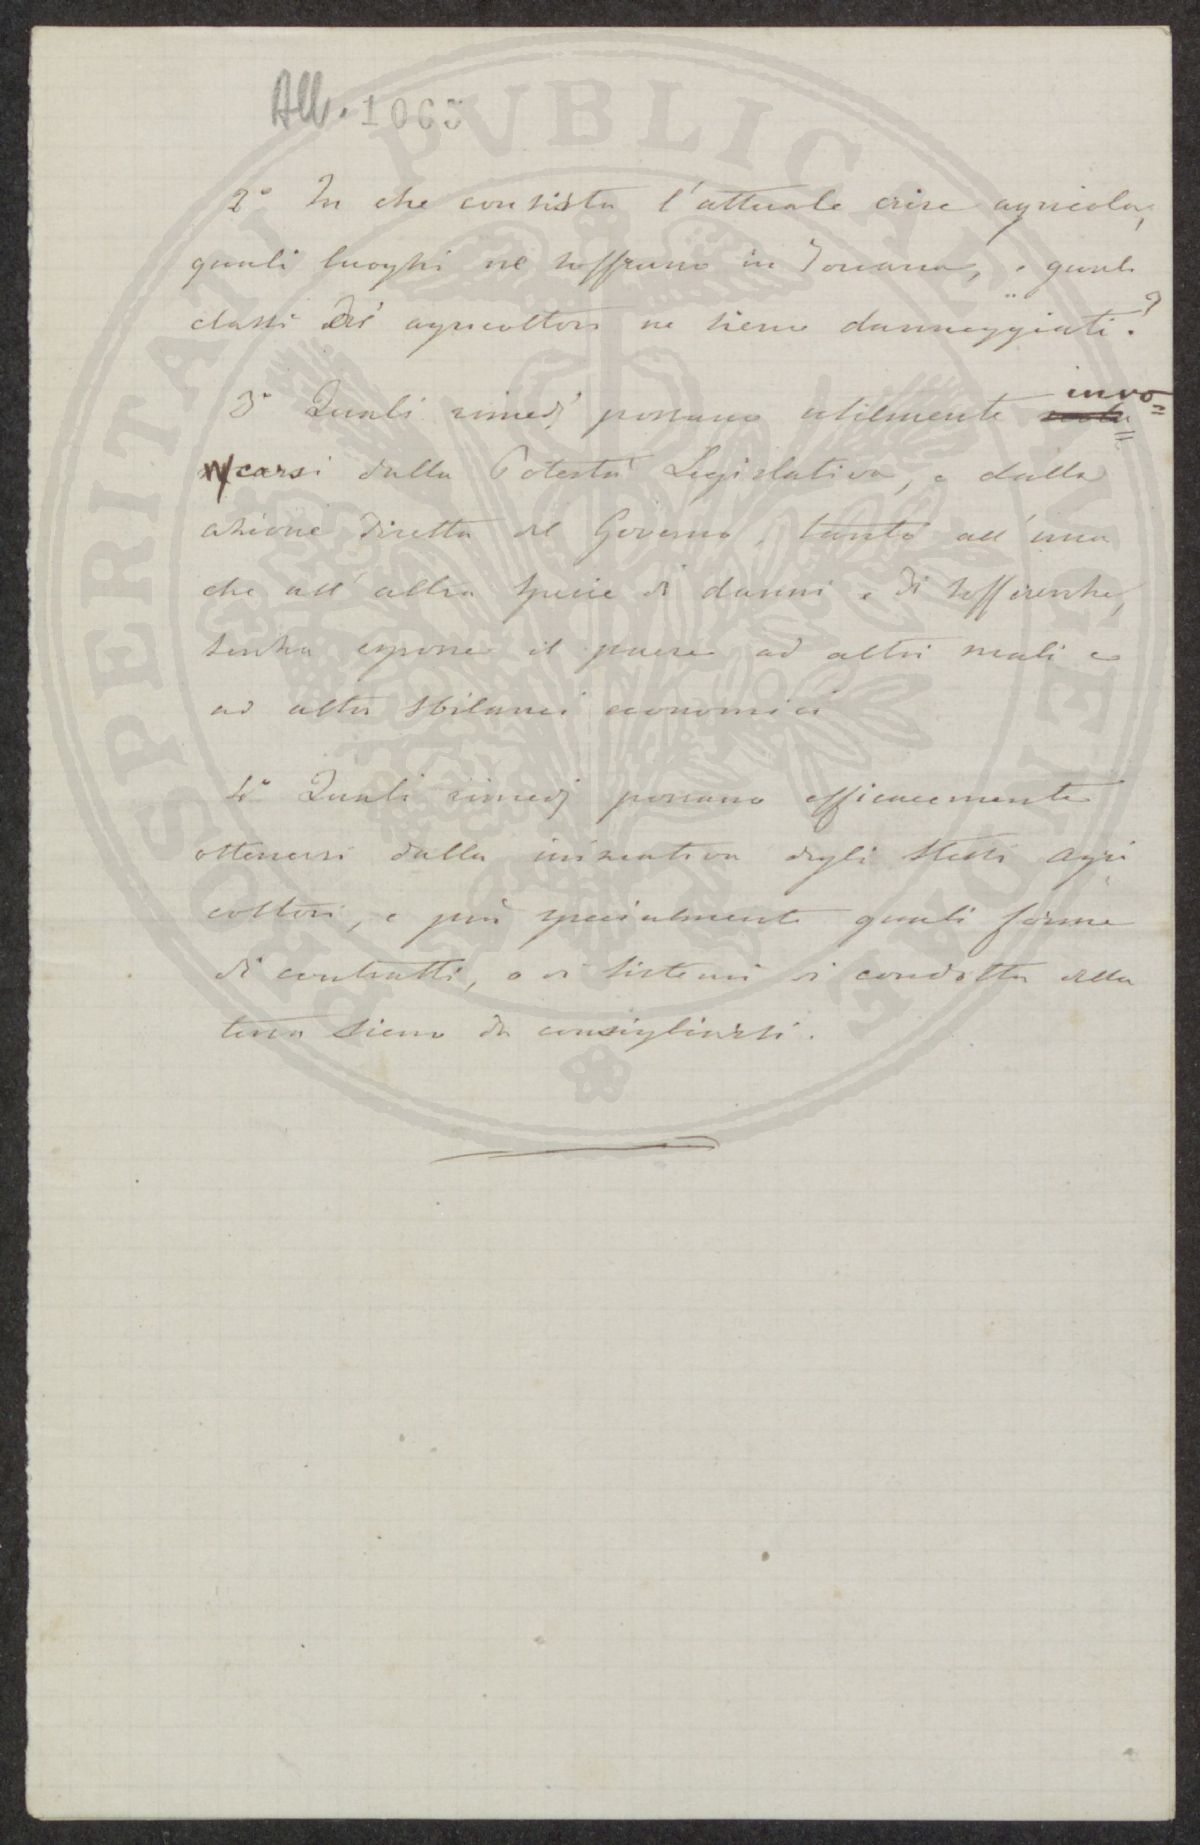 All. 1065
2° In che consista l'attuale crise agricola,
quali luoghi ne soffrano in Toscana, e quali
classi di agricoltori ne sieno danneggiati?
3° Quali rimedj possano utilmente invo=
carsi dalla Potestà Legislativa, e dalla
azione diretta del Governo, tanto all'una
che all'altra specie di danni e di sofferenze,
senza esporre il paese ad altri mali e
ad altri sbilanci economici
4° Quali rimedj possano efficacemente
ottenersi dalla iniziativa degli stessi agri
coltori, e più specialmente quali forme
di contratti, o di sistemi di condotta della
terra sieno da consigliarsi.
PROSPERITATI PVBLICAE AVGENDAE